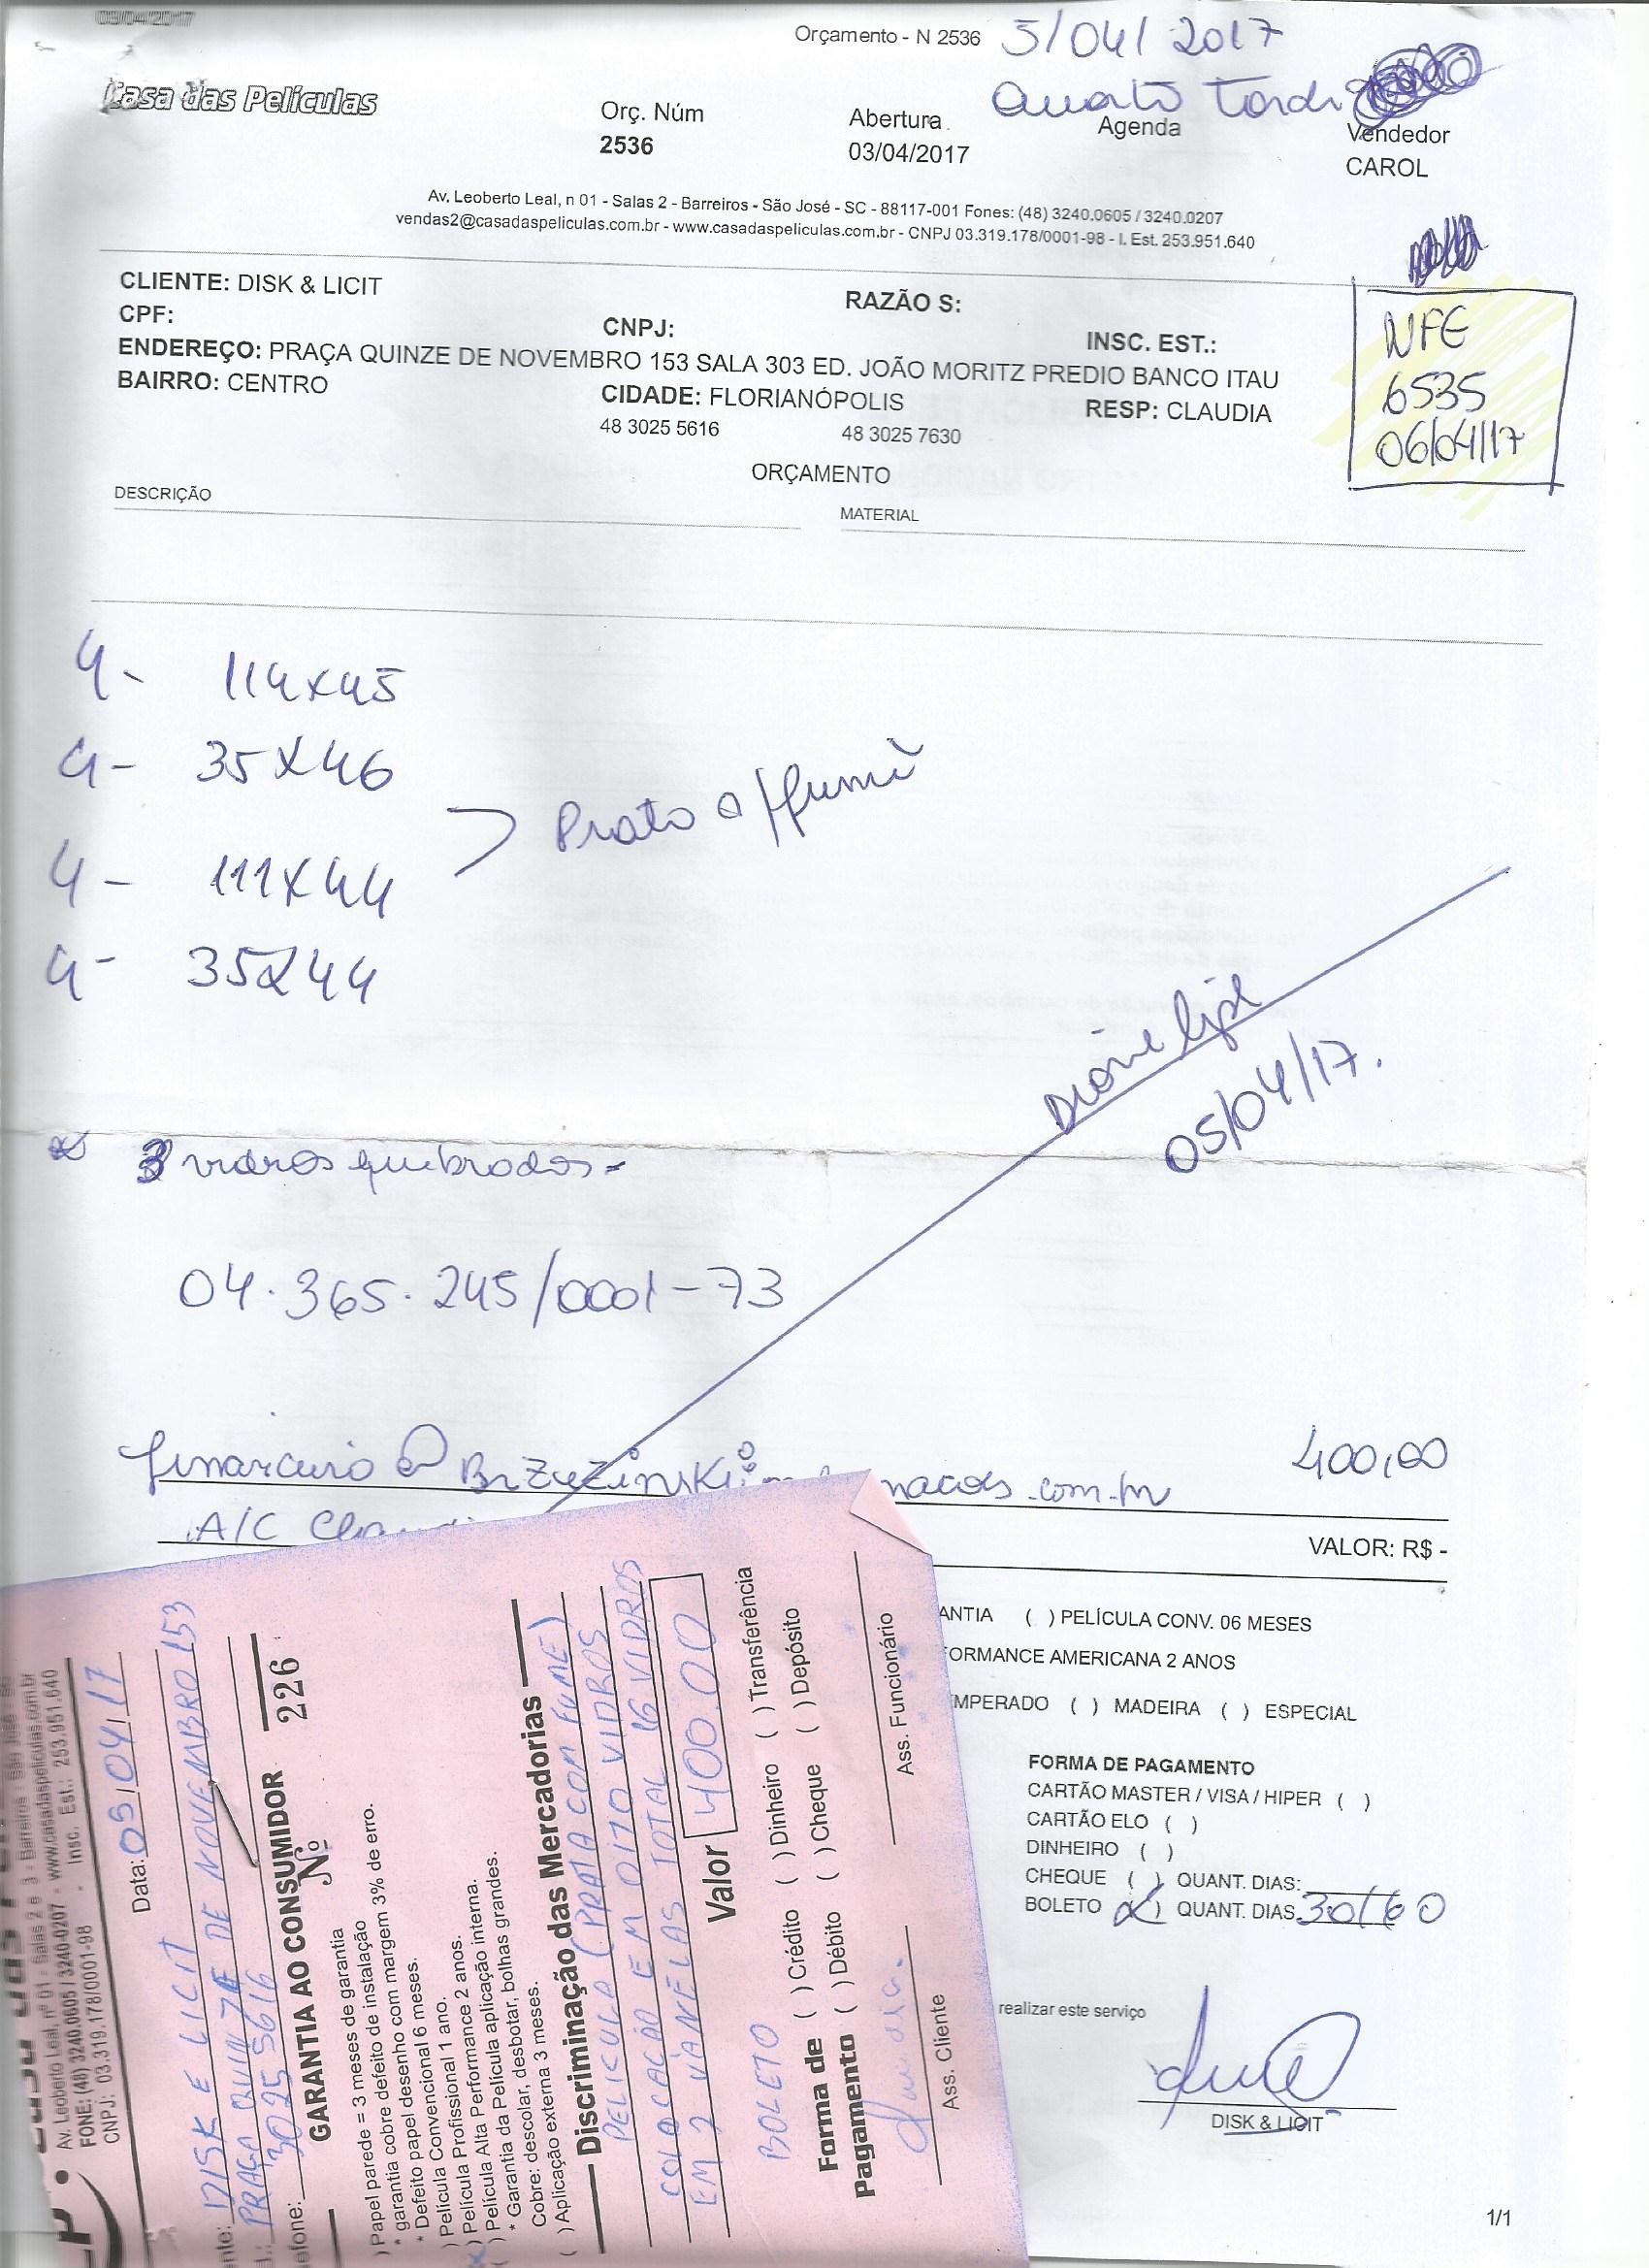 03/04/2017
Orçamento - N 2536 5/04/2017
Casa das Películas
Quarta Tarde
Orç. Núm
2536
Abertura
03/04/2017
Agenda
Vendedor
CAROL
Av. Leoberto Leal, n 01 - Salas 2 - Barreiros - São José - SC - 88117-001 Fones: (48) 3240.0605 / 3240.0207
vendas2@casadaspeliculas.com.br - www.casadaspeliculas.com.br - CNPJ 03.319.178/0001-98 - I. Est. 253.951.640
CLIENTE: DISK & LICIT
RAZÃO S:
CPF:
CNPJ:
INSC. EST.:
ENDEREÇO: PRAÇA QUINZE DE NOVEMBRO 153 SALA 303 ED. JOÃO MORITZ PREDIO BANCO ITAU
BAIRRO: CENTRO
CIDADE: FLORIANÓPOLIS
RESP: CLAUDIA
48 3025 5616
48 3025 7630
NFE
6535
06/04/17
ORÇAMENTO
DESCRIÇÃO
MATERIAL
4- 114x45
4- 35x46
4- 111x44
4- 35x44
Prata c/ fumê
05/04/17.
3 vidros quebrados-
04.365.245/0001-73
400,00
A/C
VALOR: R$ -
ANTIA ( ) PELÍCULA CONV. 06 MESES
FORMANCE AMERICANA 2 ANOS
EMPERADO ( ) MADEIRA ( ) ESPECIAL
FORMA DE PAGAMENTO
CARTÃO MASTER / VISA / HIPER ( )
CARTÃO ELO ( )
DINHEIRO ( )
CHEQUE ( ) QUANT. DIAS:
BOLETO (x) QUANT. DIAS 30/60
realizar este serviço
DISK & LICIT
1/1
Av. Leoberto Leal, nº 01 - Salas 2 e 3 - Barreiros - São José - SC
FONE: (48) 3240.0605 / 3240-0207 - www.casadaspeliculas.com.br
CNPJ: 03.319.178/0001-98 - Insc. Est.: 253.951.640
Data: 05/04/17
nte: DISK E LICIT
PRAÇA QUINZE DE NOVEMBRO 153
efone: 3025 5616
GARANTIA AO CONSUMIDOR Nº 226
) Papel parede = 3 meses de garantia
* garantia cobre defeito de instalação
* Defeito papel desenho com margem 3% de erro.
) Película Convencional 6 meses.
) Película Profissional 1 ano.
) Película Alta Performance 2 anos.
) Película aplicação interna.
* Garantia da Película aplicação interna.
Cobre: descolar, desbotar, bolhas grandes.
( ) Aplicação externa 3 meses.
Discriminação das Mercadorias
PELISCULA (PRATA COM FUME)
COLOCAÇÃO EM OITO VIDROS
EM 2 JANELAS TOTAL 16 VIDROS
Valor 400,00
BOLETO
Forma de Pagamento
( ) Crédito ( ) Dinheiro ( ) Transferência
( ) Débito ( ) Cheque ( ) Depósito
Ass. Cliente
Ass. Funcionário